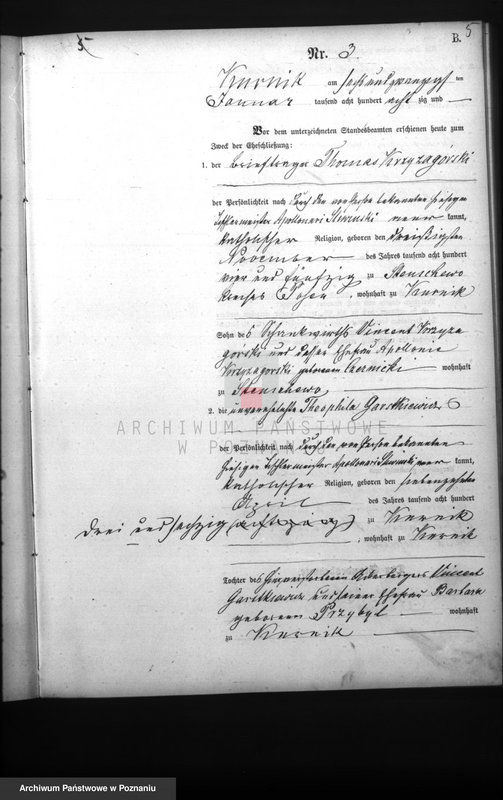 5
B. 5
Nr. 3.
Kurnik am sechsundzwanzigsten
Januar tausend acht hundert acht zig und
Vor dem unterzeichneten Standesbeamten erschienen heute zum
Zweck der Eheschließung:
1. der Briefträger Thomas Krzyzagórski
der Persönlichkeit nach durch den von Person bekannten hiesigen
Tischlermeister Apollonari Siminski kannt,
katholischer Religion, geboren den dreißigsten
November des Jahres tausend acht hundert
vier und fünfzig zu Stenschewo
Kreises Posen, wohnhaft zu Kurnik
Sohn des Schankwirths Vincent Krzyza
gorski und dessen Ehefrau Apollonie
Krzyzagorski geborenen wohnhaft
zu Stenschewo
2. die unverehelichte Theophila Garstkiewicz
ARCHIWUM PAŃSTWOWE
W POZNANIU
der Persönlichkeit nach durch den von Person bekannten
hiesigen Tischlermeister Apollonari Siminski kannt,
katholischer Religion, geboren den siebenzehnten
April des Jahres tausend acht hundert
drei und sechzig zu Kurnik
, wohnhaft zu Kurnik
Tochter des hier verstorbenen Ackerbürgers Vincent
Garstkiewicz und seiner Ehefrau Barbara
geborenen Przybyl wohnhaft
zu Kurnik
Archiwum Państwowe w Poznaniu